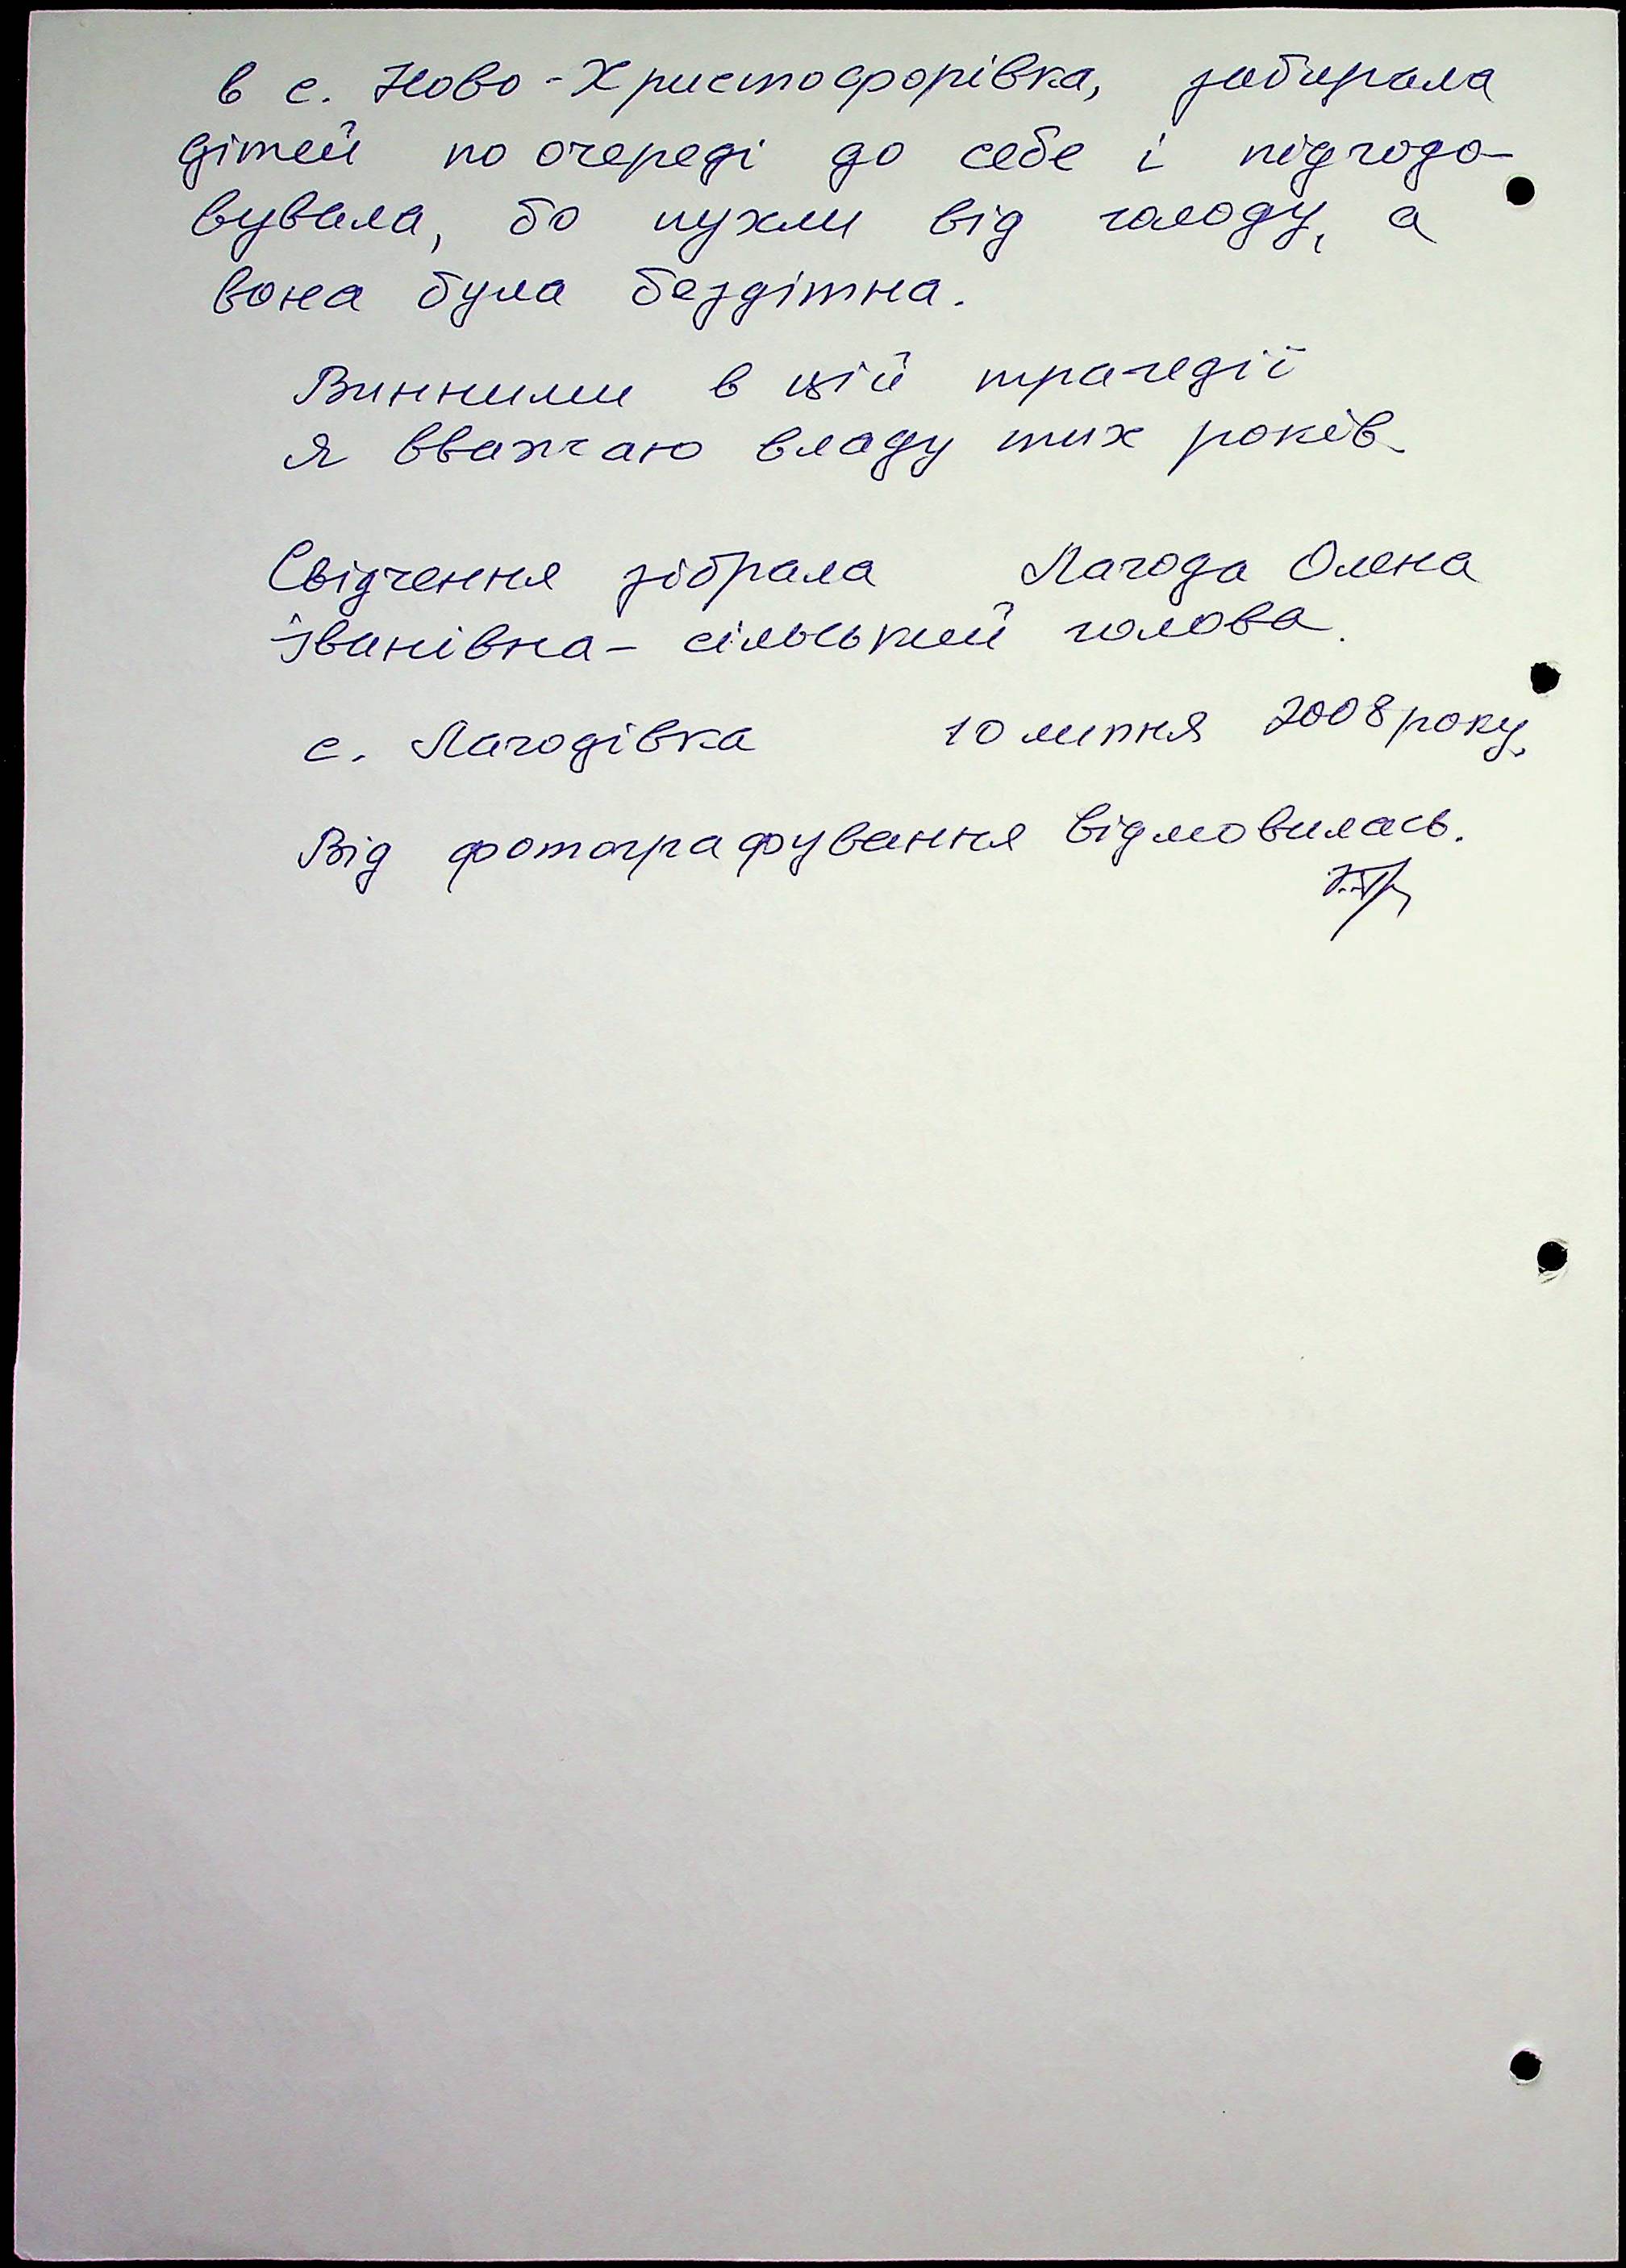 в с. Ново-Христофорівка, забирала
дітей по очереді до себе і підгодо-
вувала, бо пухли від голоду, а
вона була бездітна.
Винними в цій трагедії
я вважаю владу тих років.
Свідчення зібрала Лагода Олена
Іванівна - сільський голова.
с. Лагодівка 10 липня 2008 року.
Від фотографування відмовилась.